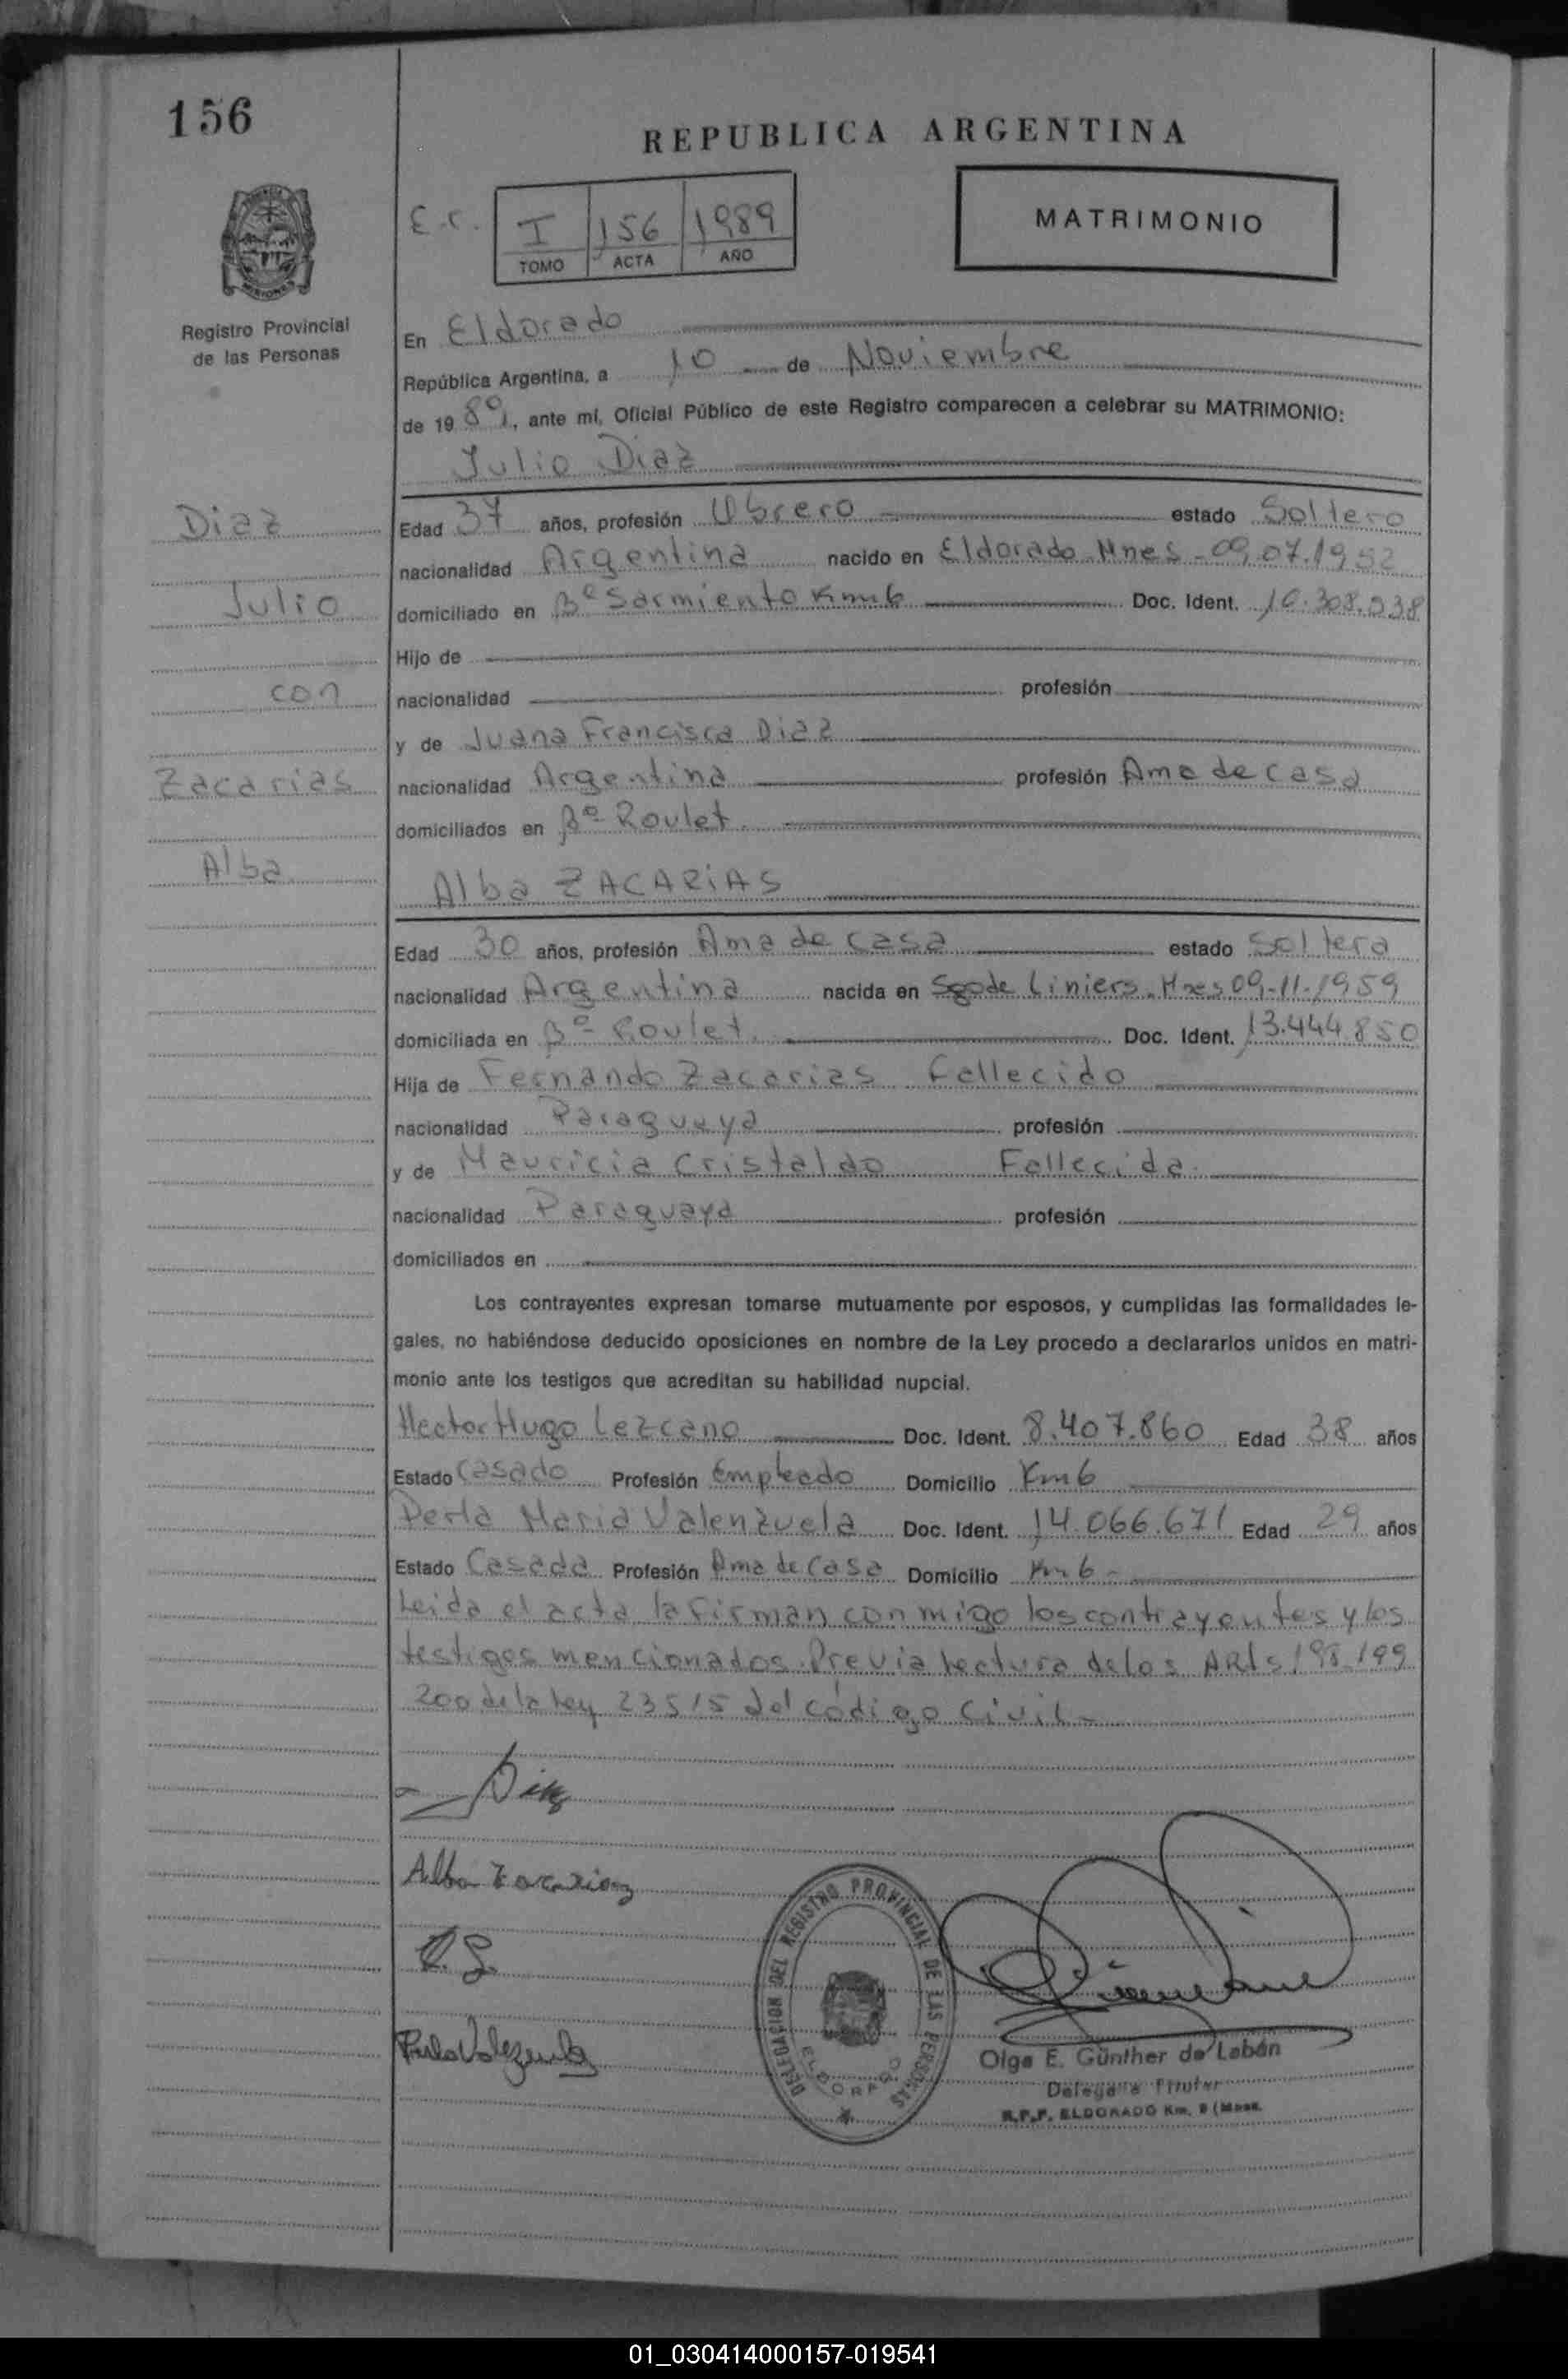 156
REPUBLICA ARGENTINA
E.C.
I 156 1989
TOMO ACTA AÑO
MATRIMONIO
Registro Provincial
de las Personas
En Eldorado
República Argentina, a 10 de Noviembre
de 19 89, ante mí, Oficial Público de este Registro comparecen a celebrar su MATRIMONIO:
Julio Diaz
Diaz
Julio
con
Zacarias
Alba
Edad 37 años, profesión Obrero estado Soltero
nacionalidad Argentina nacido en Eldorado Mnes - 09.07.1952
domiciliado en Bº Sarmiento Km 6 Doc. Ident. 10.308.938
Hijo de
nacionalidad profesión
y de Juana Francisca Diaz
nacionalidad Argentina profesión Ama de casa
domiciliados en Bº Roulet.
Alba ZACARiAS
Edad 30 años, profesión Ama de casa estado Soltera
nacionalidad Argentina nacida en Sgo de Liniers. Mnes 09-11-1959
domiciliada en Bº Roulet. Doc. Ident. 13.444.850
Hija de Fernando Zacarias Fallecido
nacionalidad Paraguaya profesión
y de Mauricia Cristaldo Fallecida.
nacionalidad Paraguaya profesión
domiciliados en
Los contrayentes expresan tomarse mutuamente por esposos, y cumplidas las formalidades le-
gales, no habiéndose deducido oposiciones en nombre de la Ley procedo a declararlos unidos en matri-
monio ante los testigos que acreditan su habilidad nupcial.
Hector Hugo Lezcano Doc. Ident. 8.407.860 Edad 38 años
Estado Casado Profesión Empleado Domicilio Km 6
Perla Maria Valenzuela Doc. Ident. 14.066.671 Edad 29 años
Estado Casada Profesión Ama de Casa Domicilio Km 6 -
Leida el acta la firman con migo los contrayentes y los
testigos mencionados. Previa Lectura de los ARts 198-199
200 de la Ley 23515 del código Civil -
Diaz
Alba Zacarias
Perla Valezuela
DELEGACION DEL REGISTRO PROVINCIAL DE LAS PERSONAS
ELDORADO
Olga E. Günther de Labán
Delegada Titular
R.P.P. ELDORADO Km.
01_030414000157-019541